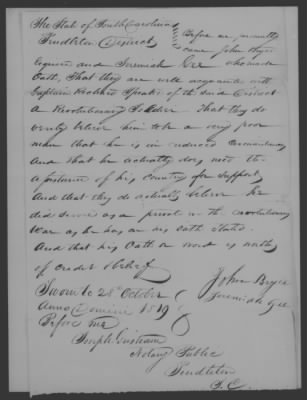 The State of South Carolina
Pendleton District
Before me personally
came John Bryce
Esquire and Jeremiah Gee who made
Oath, That they are well acquainted with
Captain Richard Speaks of the said District
a Revolutionary Soldier That they do
verily believe him to be a very poor
man that he is in reduced circumstances
And that he actually does need the
assistance of his Country for support
And that they do actually believe he
did service as a private in the revolutionary
War as he has on his oath stated.
And that his Oath on word is worth
of credit & belief
Sworn to 28th October
Anno Domini 1819
Before me
John Bryce
Jeremiah Gee
Joseph Grisham
Notary Public
Pendleton
S. C.